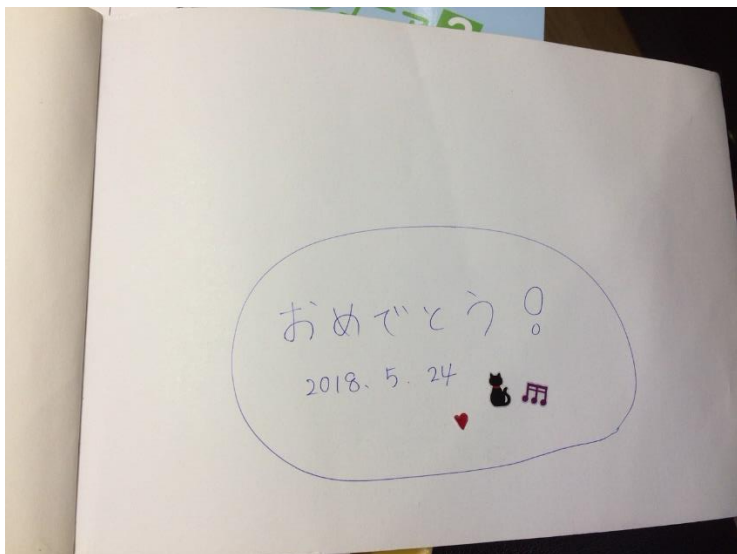 おめでとう!
2018. 5. 24